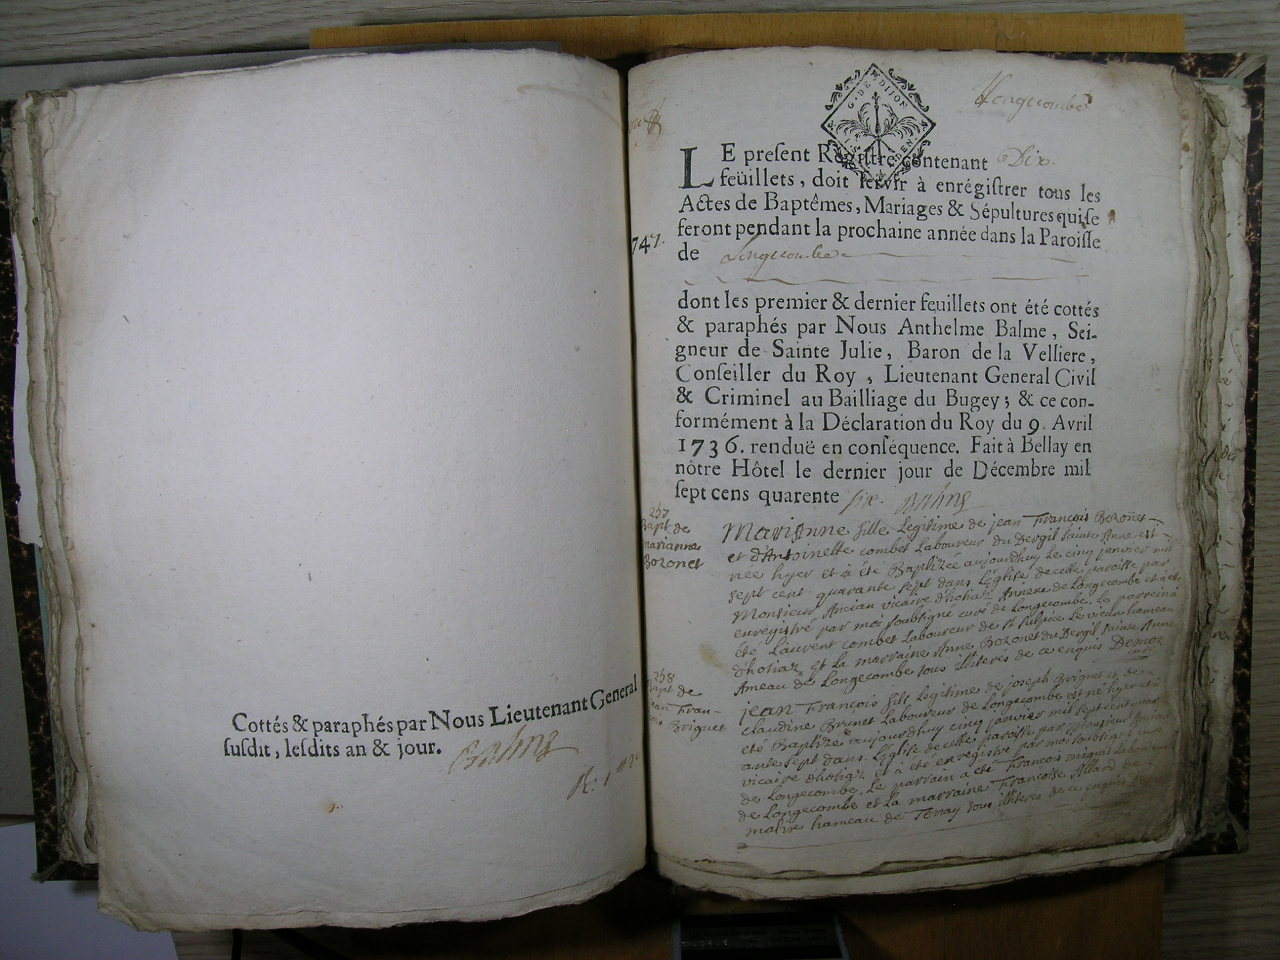 Cottés & paraphés par Nous Lieutenant General
susdit, lesdits an & jour.
Balme
Longecombe
G. DE DIJON
LE present Registre contenant Dix
feüillets, doit servir à enrégistrer tous les
Actes de Baptêmes, Mariages & Sépultures qui se
feront pendant la prochaine année dans la Paroisse
747.
de Longecombe
dont les premier & dernier feuillets ont été cottés
& paraphés par Nous Anthelme Balme, Sei-
gneur de Sainte Julie, Baron de la Velliere,
Conseiller du Roy, Lieutenant General Civil
& Criminel au Bailliage du Bugey; & ce con-
formément à la Déclaration du Roy du 9. Avril
1736. renduë en conséquence. Fait à Bellay en
nôtre Hôtel le dernier jour de Décembre mil
sept cens quarente six. Balme
257
Bapt de
Marianne
Bozonet
Marianne fille Legitime de jean François Bozonet
et d'Antoinette combet Laboureur du Dergil sainte Anne est
née hyer et à été Baptizée aujourdhuy le cinq janvier mil
sept cent quarante sept dans L'Eglise de cette paroisse par
Monsieur Ancian vicaire d'hotiaz Annexe de Longecombe et à été
enregistré par moi soubsigné curé de Longecombe. Le parrein à
été Laurent combet Laboureur de st sulpice Le vieux hameau
d'hotiaz et La marraine Anne Bozonet du Dergil sainte Anne
Ameau de Longecombe tous illiterés de ce enquis Demoz
258
Bapt de
jean Fran-
cois
Briguet
jean François fils Legitime de joseph Briguet et de
claudine Brunet Laboureur de Longecombe est né hyer et à
eté Baptizé aujourdhuy cinq janvier mil sept cent quar
ante sept dans L'Eglise de cette paroisse par Monsieur Ancian
vicaire d'hotiaz et à été enregistré par moi soubsigné curé
de Longecombe. Le parrain à eté François miguet Laboureur
de Longecombe et La marraine Françoise Allard de
malix hameau de Tenay tous illiterés de ce enquis